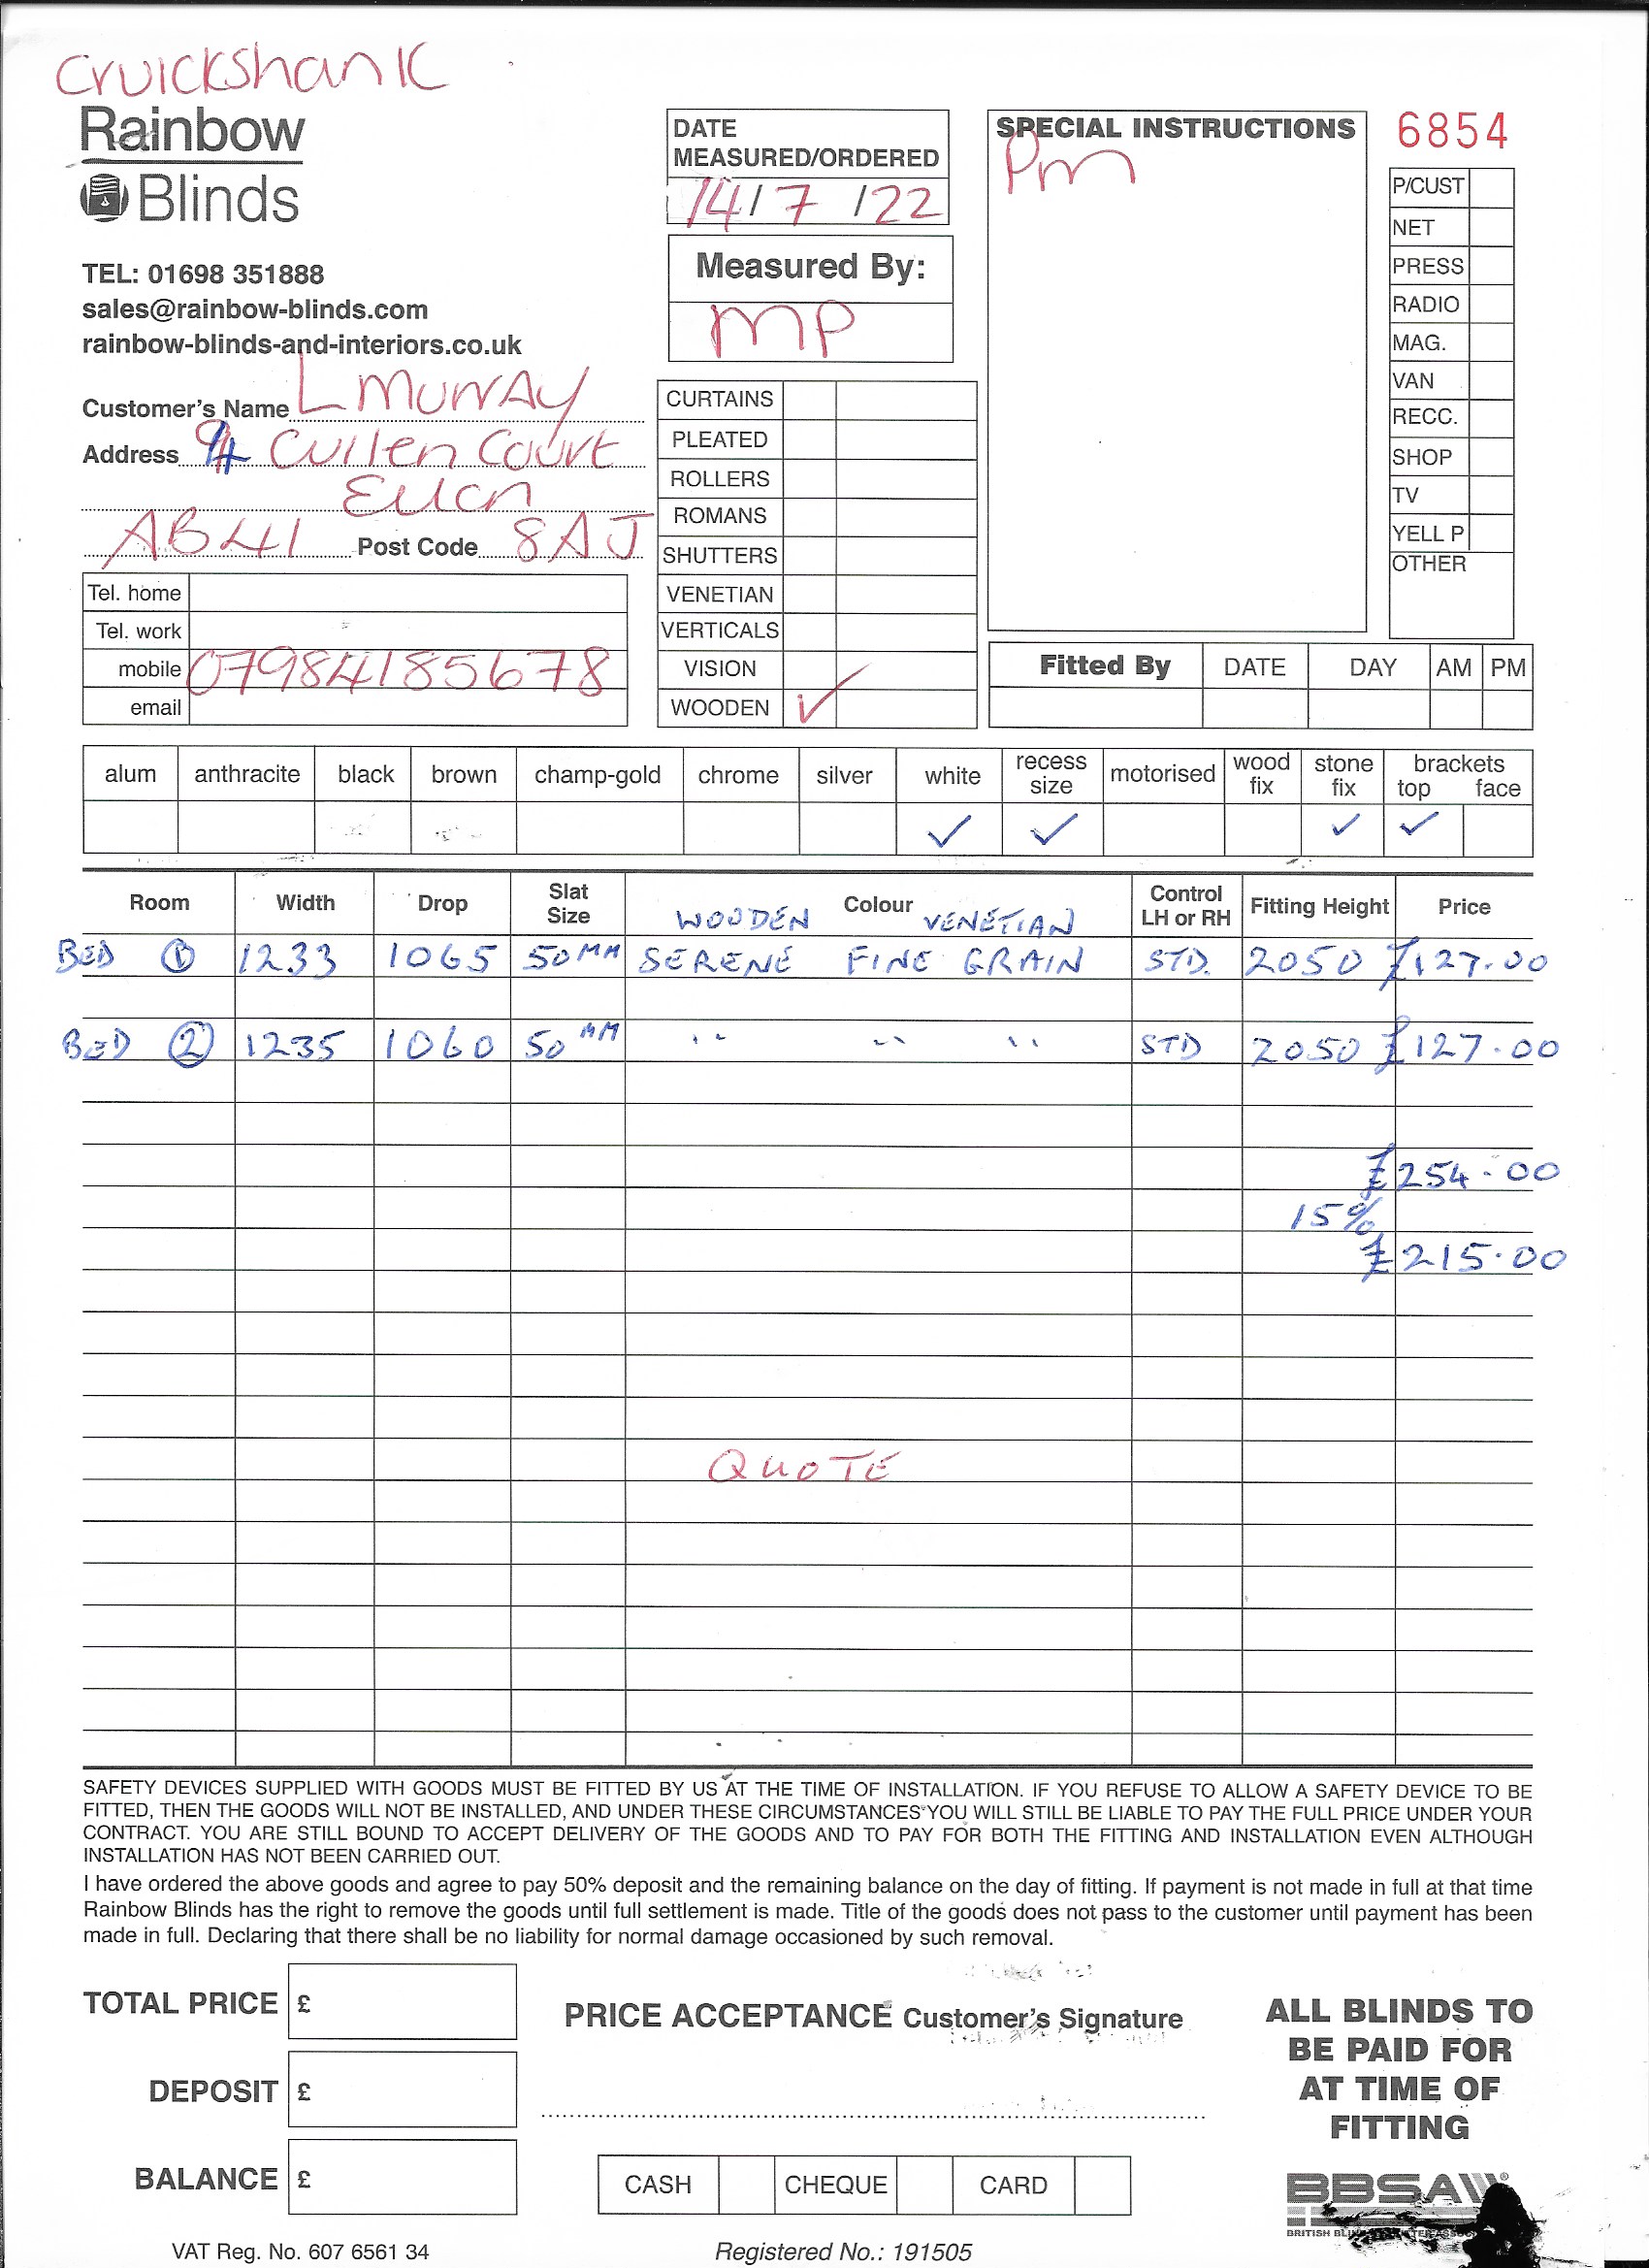 CruickshanK
Rainbow
Blinds
TEL: 01698 351888
sales@rainbow-blinds.com
rainbow-blinds-and-interiors.co.uk
Customer's Name L Murray
Address Cullen Court
Ellon
AB41 Post Code 8AJ
Tel. home
Tel. work
mobile 07984185678
email
DATE
MEASURED/ORDERED
14/7/22
Measured By:
MP
CURTAINS
PLEATED
ROLLERS
ROMANS
SHUTTERS
VENETIAN
VERTICALS
VISION
WOODEN ✓
SPECIAL INSTRUCTIONS
Pm
6854
P/CUST
NET
PRESS
RADIO
MAG.
VAN
RECC.
SHOP
TV
YELL P
OTHER
Fitted By DATE DAY AM PM
alum anthracite black brown champ-gold chrome silver white recess size motorised wood fix stone fix brackets top face
✓ ✓ ✓ ✓
Room Width Drop Slat Size Colour Control LH or RH Fitting Height Price
WOODEN VENETIAN
BED ① 1233 1065 50MM SERENE FINE GRAIN STD. 2050 £127.00
BED ② 1235 1060 50MM " " " STD 2050 £127.00
£254.00
15%
£215.00
QUOTE
SAFETY DEVICES SUPPLIED WITH GOODS MUST BE FITTED BY US AT THE TIME OF INSTALLATION. IF YOU REFUSE TO ALLOW A SAFETY DEVICE TO BE
FITTED, THEN THE GOODS WILL NOT BE INSTALLED, AND UNDER THESE CIRCUMSTANCES YOU WILL STILL BE LIABLE TO PAY THE FULL PRICE UNDER YOUR
CONTRACT. YOU ARE STILL BOUND TO ACCEPT DELIVERY OF THE GOODS AND TO PAY FOR BOTH THE FITTING AND INSTALLATION EVEN ALTHOUGH
INSTALLATION HAS NOT BEEN CARRIED OUT.
I have ordered the above goods and agree to pay 50% deposit and the remaining balance on the day of fitting. If payment is not made in full at that time
Rainbow Blinds has the right to remove the goods until full settlement is made. Title of the goods does not pass to the customer until payment has been
made in full. Declaring that there shall be no liability for normal damage occasioned by such removal.
TOTAL PRICE £
DEPOSIT £
BALANCE £
PRICE ACCEPTANCE Customer's Signature
CASH CHEQUE CARD
ALL BLINDS TO
BE PAID FOR
AT TIME OF
FITTING
BBSA
BRITISH
VAT Reg. No. 607 6561 34
Registered No.: 191505